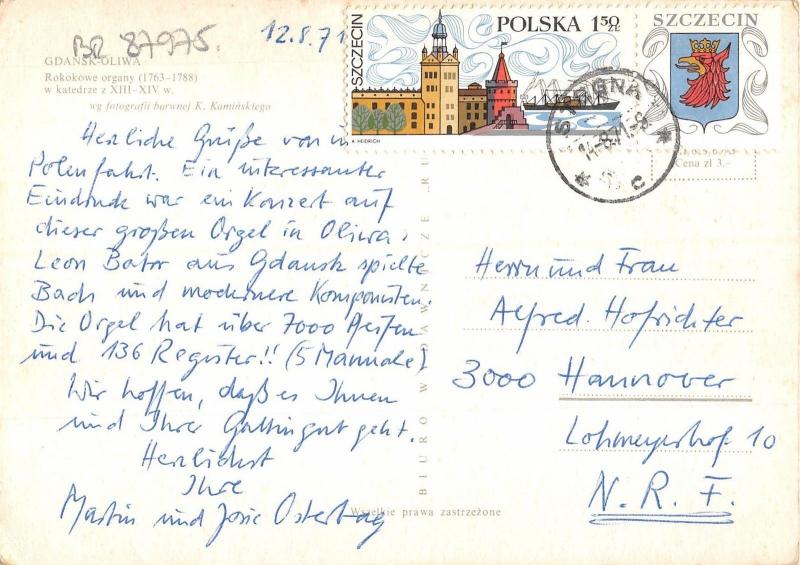 BR 87975
12.8.71
GDAŃSK-OLIWA
Rokokowe organy (1763–1788)
w katedrze z XIII–XIV w.
wg fotografii barwnej K. Kamińskiego
Herzliche Grüße von
Polenfahrt. Ein interessanter
Eindruck war ein Konzert auf
dieser großen Orgel in Oliwa.
Leon Bator aus Gdansk spielte
Bach und modernere Komponisten.
Die Orgel hat über 7000 Pfeifen
und 136 Register!! (5 Manuale)
Wir hoffen, daß es Ihnen
und Ihrer Gattin gut geht.
Herzlichst
Ihre
Martin und Josie Ostertag
BIURO WYDAWNICZE „RU
Wszelkie prawa zastrzeżone
SZCZECIN
POLSKA 1,50 zł
A. HEIDRICH
SZCZECIN
14.-8.71.-8
c
Cena zł 3,–
Herrn und Frau
Alfred Hofrichter
3000 Hannover
Lohmeyerhof 10
N. R. F.